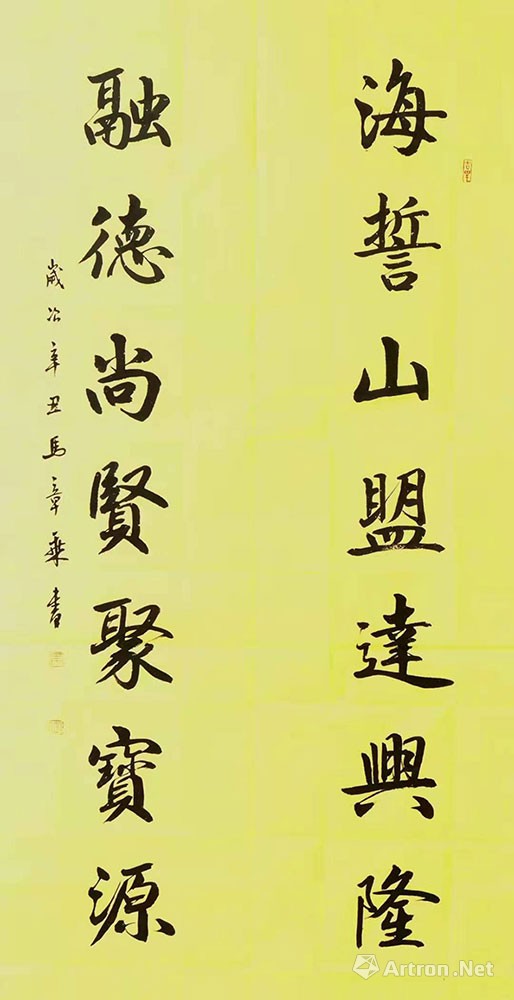 海誓山盟達興隆
融德尚賢聚寶源
歲次辛丑馬章乘書
Artron.Net